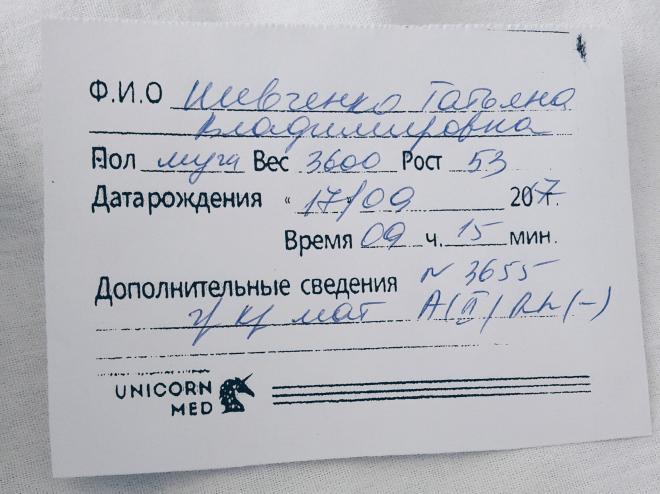 Ф.И.О Шевченко Татьяна
Владимировна
Пол муж Вес 3600 Рост 53
Дата рождения « 17/09 2017.
Время 09 ч. 15 мин.
Дополнительные сведения N 3655
гр кр мат A(II) Rh(-)
UNICORN
MED